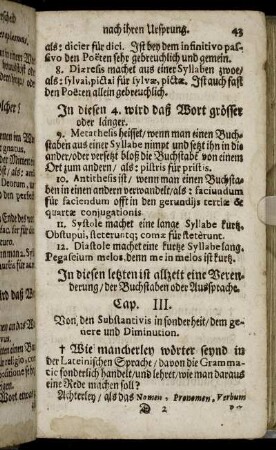 nach ihren Ursprung. 43
als: dicier für dici. Ist bey dem infinitivo pas-
sivo den Poëten sehr gebreuchlich und gemein.
8. Diæresis machet aus einer Syllaben zwoe/
als: sylvai, pictai für sylvæ, pictæ. Ist auch fast
den Poëten allein gebreuchlich.
In diesen 4. wird daß Wort grösser
oder länger.
9. Metathesis heisset/ wenn man einen Buch-
staben aus einer Syllabe nimpt und setzt ihn in die
ander/oder versetzt bloß die Buchstabē von einem
Ort zum andern/ als: pistris für pristis.
10. Antithesis ist/ wenn man einen Buchsta-
ben in einen andern verwandelt/als: faciundum
für faciendum offt in den gerundiis tertiæ &
quartæ conjugationis.
11. Systole machet eine lange Syllabe kurtz.
Obstupui, steteruntqʒ comæ für stetèrunt.
12. Diastole machet eine kurtze Syllabe lang.
Pegaseium melos, denn me in melos ist kurtz.
In diesen letzten ist allzeit eine Veren-
derung/ der Buchstaben oder Aussprache.
Cap. III.
Von den Substantivis in sonderheit/ dem ge-
nere und Diminution.
† Wie mancherley wörter seynd in
der Lateinischen Sprache/ davon die Gramma-
tic sonderlich handelt/ und lehret/ wie man daraus
eine Rede machen soll?
Achterley/ als das Nomen, Pronomen, Verbum
D 2